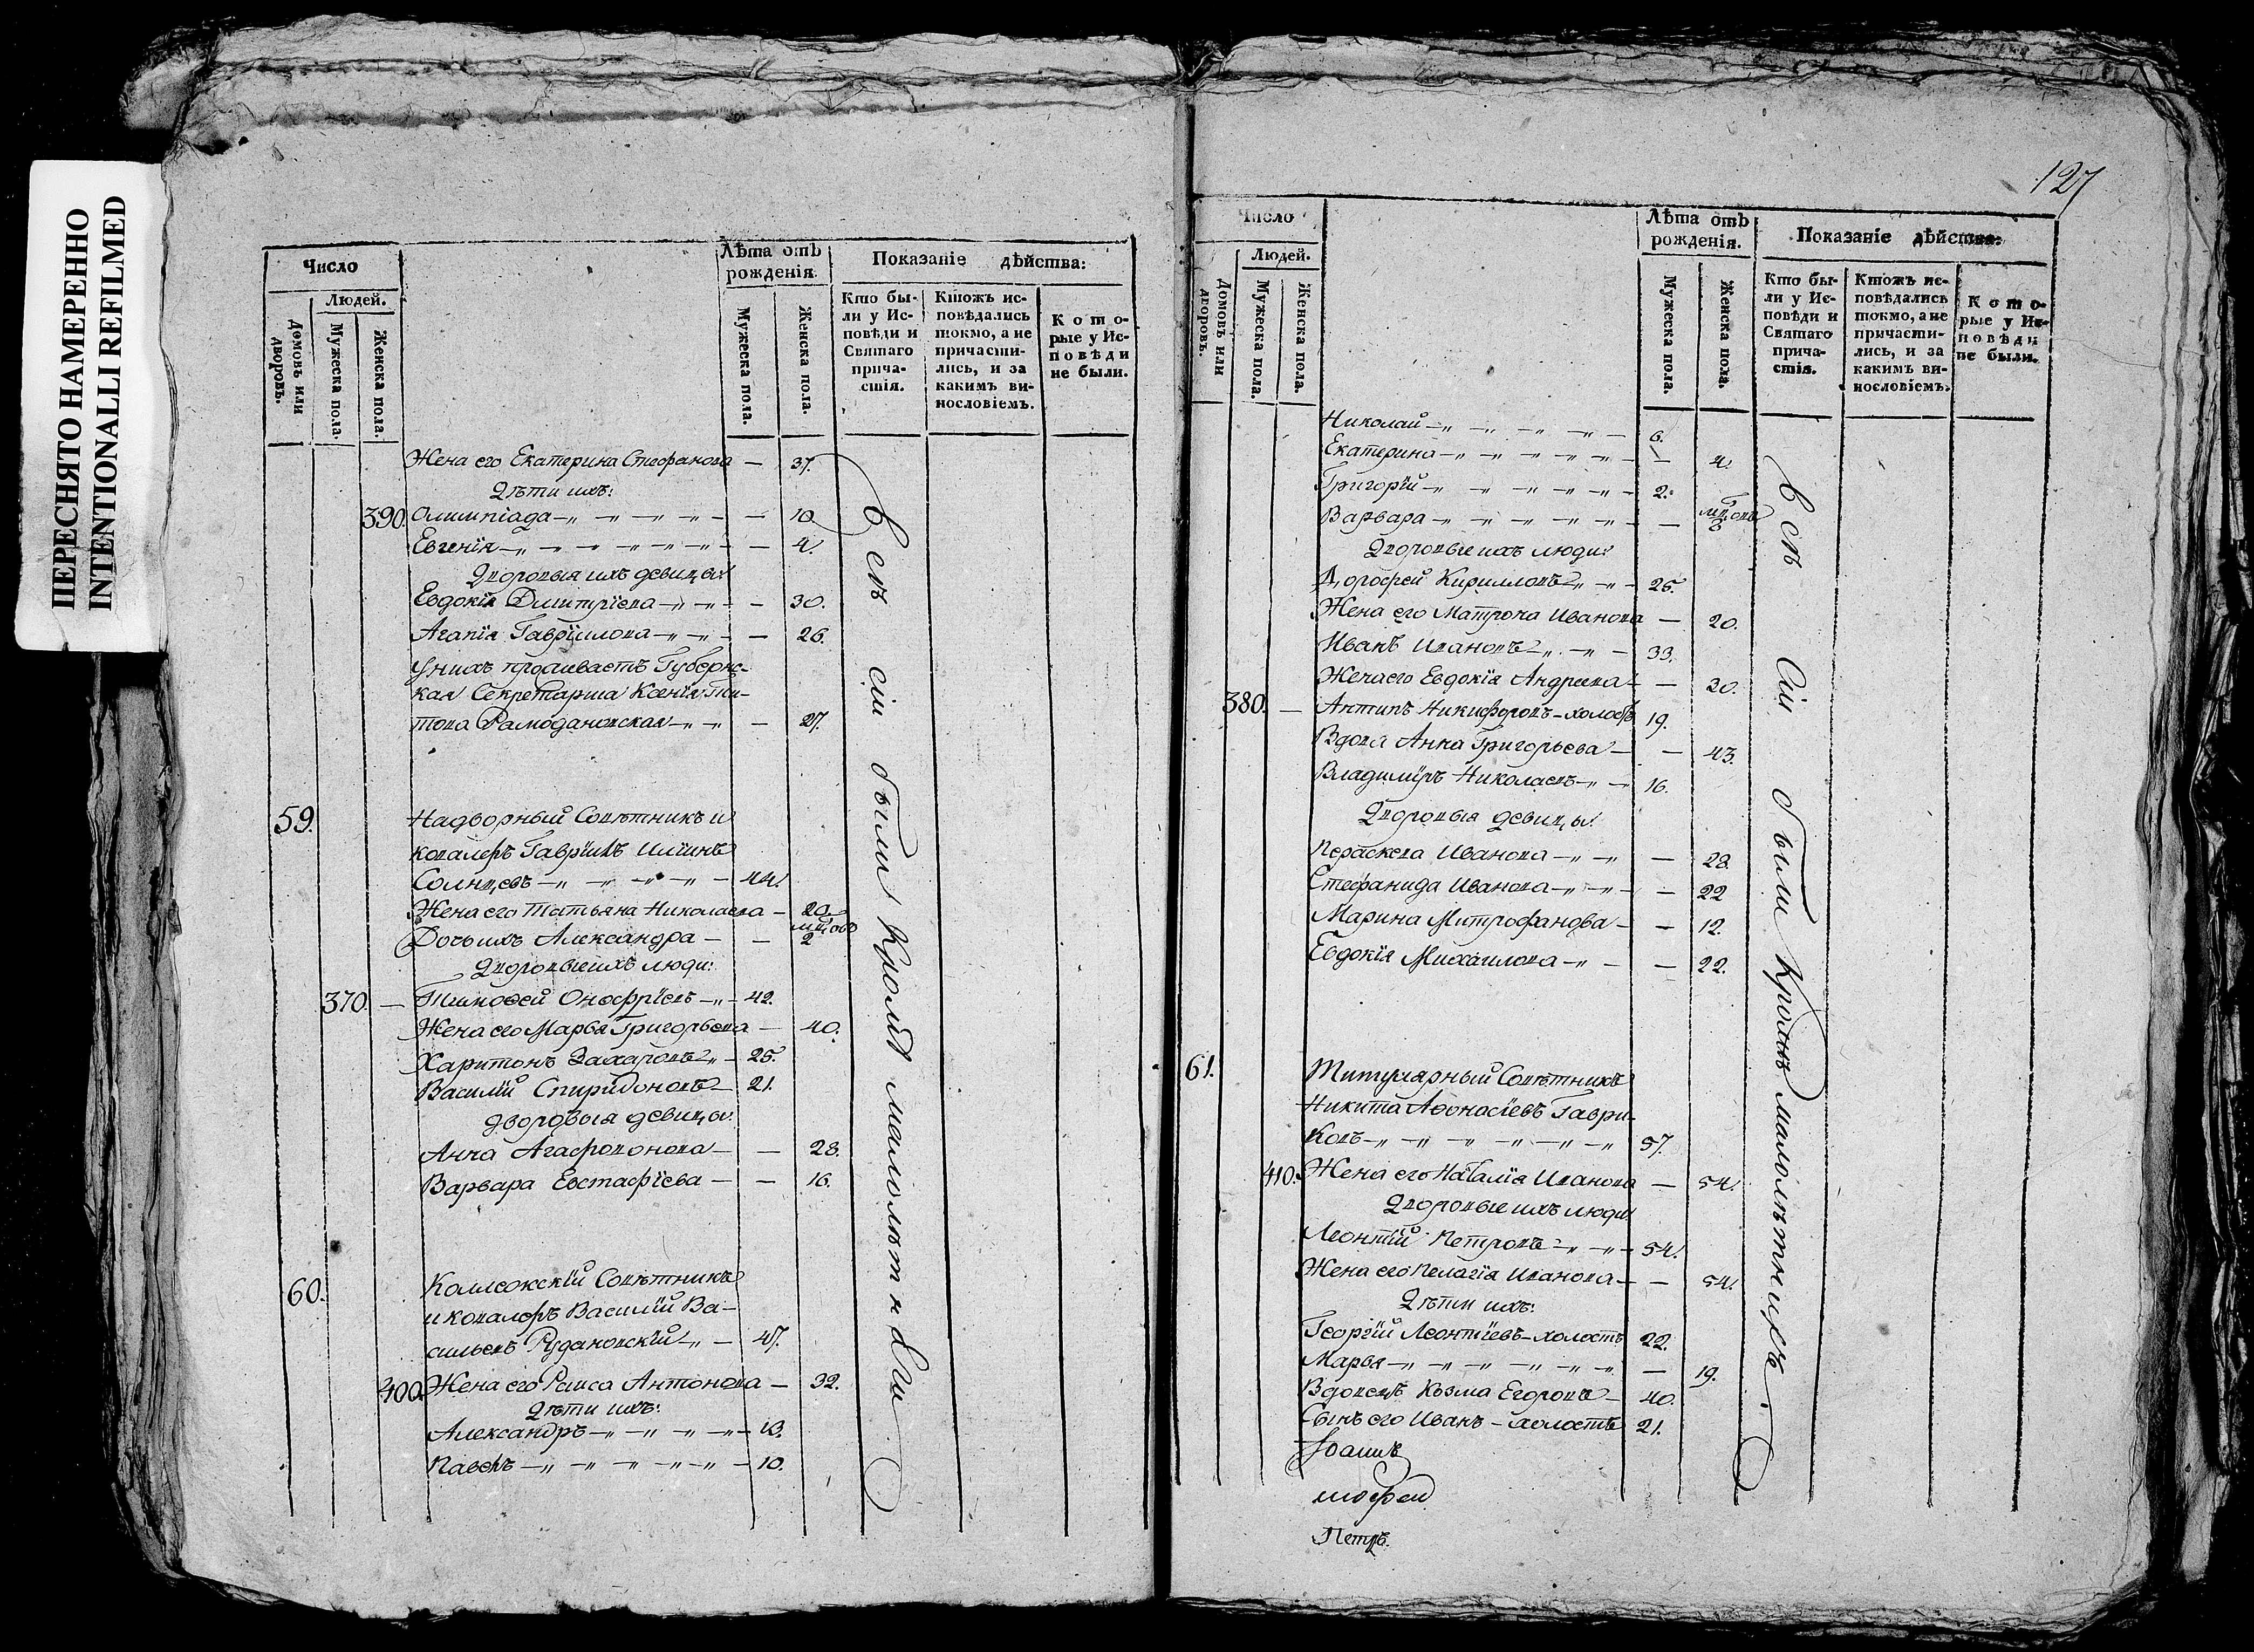 ПЕРЕСНЯТО НАМЕРЕННО
INTENTIONALLI REFILMED
Число
Лѣта отъ рожденія.
Показаніе дѣйства:
Людей.
Домовъ или дворовъ.
Мужеска пола.
Женска пола.
Мужеска пола.
Женска пола.
Кто были у Исповѣди и Святаго причастія.
Ктожъ исповѣдались токмо, а не причастились, и за какимъ винословіемъ.
Которые у Исповѣди не были.
Жена его Екатерина Стефанова — 37.
Дѣти ихъ:
390. Олимпіада — 10
Евгенія — 4.
Дворовыя ихъ девицы:
Евдокія Дмитріева — 30.
Агапія Гавріилова — 26.
У нихъ проживаетъ Губернс-
кая Секретарша Ксенія Ти-
това Рамодановская — 27.
59. Надворный Совѣтникъ и
ковалеръ Гавріилъ Иліинъ
Солнцевъ — 44.
Жена его Татьяна Николаева — 20
Дочь ихъ Александра — — мцово 2
Дворовые ихъ люди:
370. — Тимоѳей Онофріевъ — 42.
Жена его Марья Григорьева — 40.
Харитонъ Захаровъ — 25.
Василій Спиридоновъ — 21.
Дворовыя девицы:
Анна Агафонова — — 28.
Варвара Евстафіева — — 16.
60. Коллежскій Совѣтникъ
и ковалеръ Василій Ва-
сильевъ Рудановскій — 47.
400. Жена его Раиса Антонова — 32.
Дѣти ихъ:
Александръ — 13.
Павелъ — 10.
Всѣ сіи были кромѣ малолѣтнѣи
127
Число
Лѣта отъ рожденія.
Показаніе дѣйства:
Людей.
Домовъ или дворовъ.
Мужеска пола.
Женска пола.
Мужеска пола.
Женска пола.
Кто были у Исповѣди и Святаго причастія.
Ктожъ исповѣдались токмо, а не причастились, и за какимъ винословіемъ.
Которые у Исповѣди не были.
Николай — 6.
Екатерина — 4.
Григорій — 2.
Варвара — 8
Дворовые ихъ люди:
Дорофей Кирилловъ — 25.
Жена его Матрона Иванова — 20.
Иванъ Ивановъ — 33.
Жена его Евдокія Андреева — 30.
380. — Антипъ Никифоровъ — холостъ 19.
Вдова Анна Григорьева — — 43.
Владиміръ Николаевъ — 16.
Дворовыя девицы:
Пераскева Иванова — 28.
Стефанида Иванова — 22
Марина Митрофанова — — 12.
Евдокія Михаилова — — 22.
61. Титулярный Совѣтникъ
Никита Аѳонасіевъ Гаври-
ковъ — 57.
410. Жена его Наталія Иванова — 54.
Дворовые ихъ люди:
Леонтій Петровъ — 54.
Жена его Пелагія Иванова — — 54.
Дѣти ихъ:
Георгій Леонтіевъ — холостъ 22.
Марья — 19.
Вдовецъ Козма Егоровъ — 40.
Сынъ его Иванъ — холостъ 21.
Всѣ Сіи были кромѣ малолѣтнихъ.
Петръ.